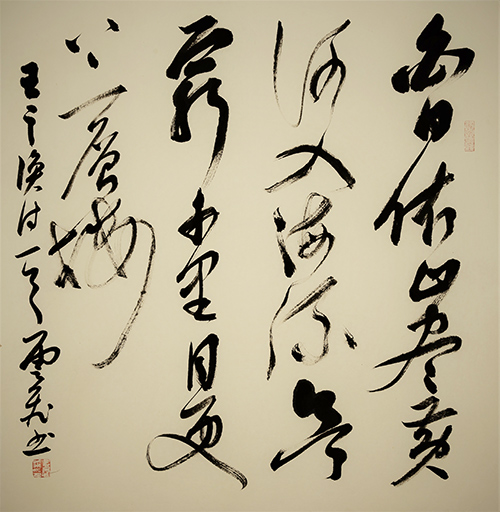 白日依山尽黄
河入海流欲
穷千里目更
上一层楼
王之涣诗一首 书